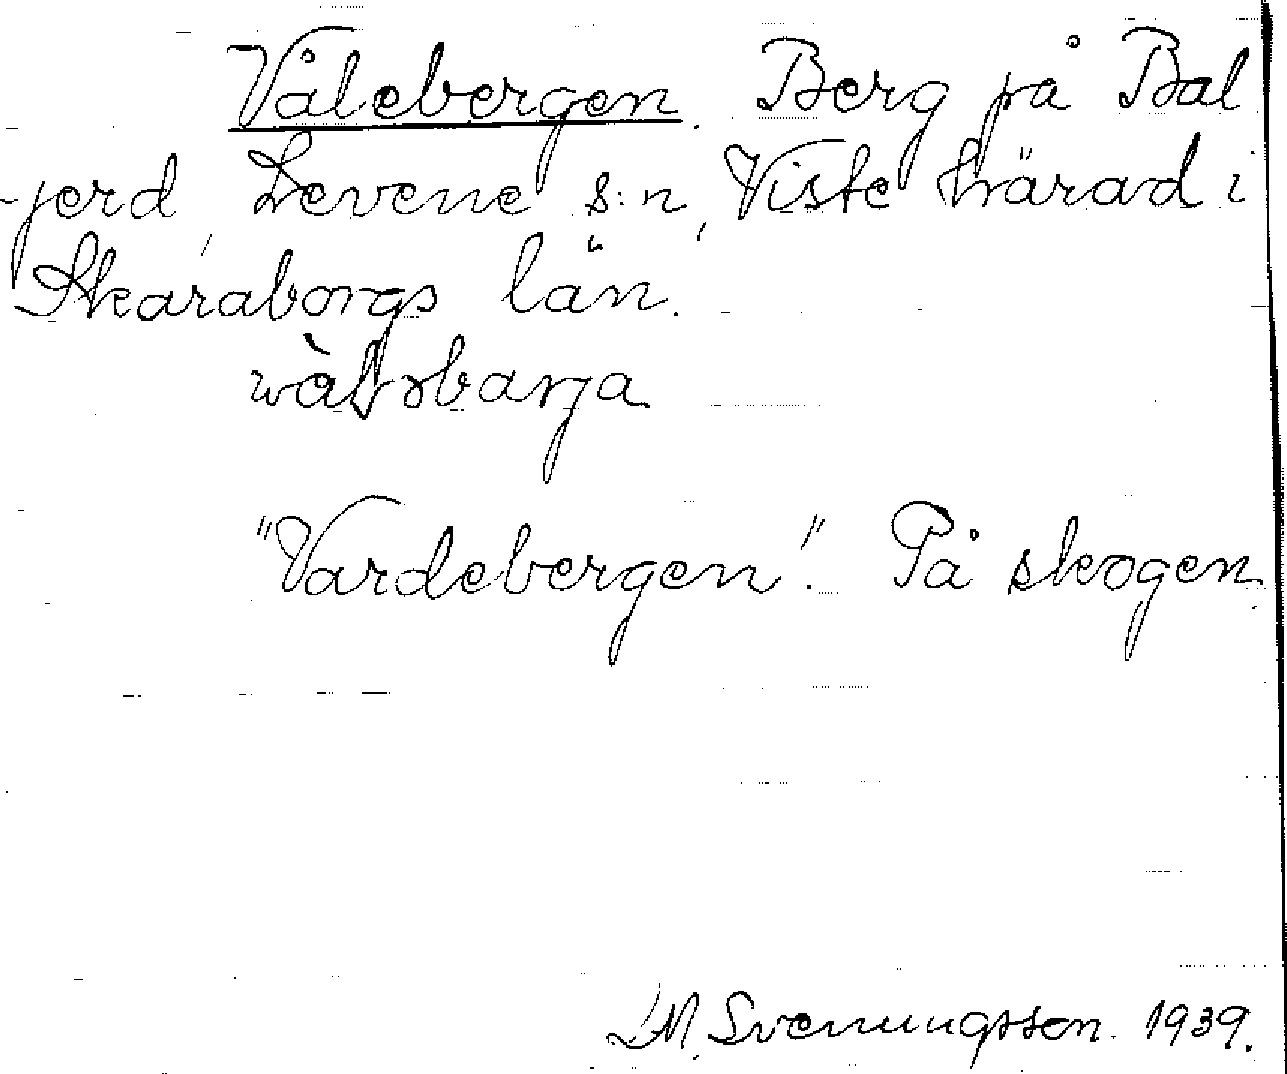 Vålebergen. Berg på Bal
-jerd, Levene s:n, Viste härad i
Skaraborgs län.
"Vardebergen". På skogen.
LM. Svenungsson. 1939.